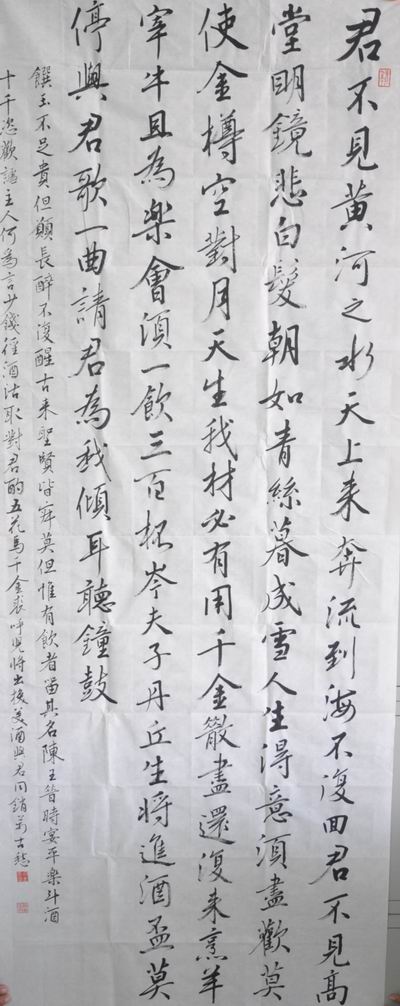 君不見黄河之水天上来奔流到海不復回君不見高
堂明鏡悲白髮朝如青絲暮成雪人生得意須盡歡莫
使金樽空對月天生我材必有用千金散盡還復来烹羊
宰牛且為樂會須一飲三百杯岑夫子丹丘生將進酒盃莫
停與君歌一曲請君為我傾耳聽鐘鼓
饌玉不足貴但願長醉不復醒古来聖賢皆寂莫但惟有飲者留其名陳王昔時宴平樂斗酒
十千恣歡謔主人何為言少錢徑酒沽取對君酌五花馬千金裘呼兒將出換美酒與君同銷萬古愁